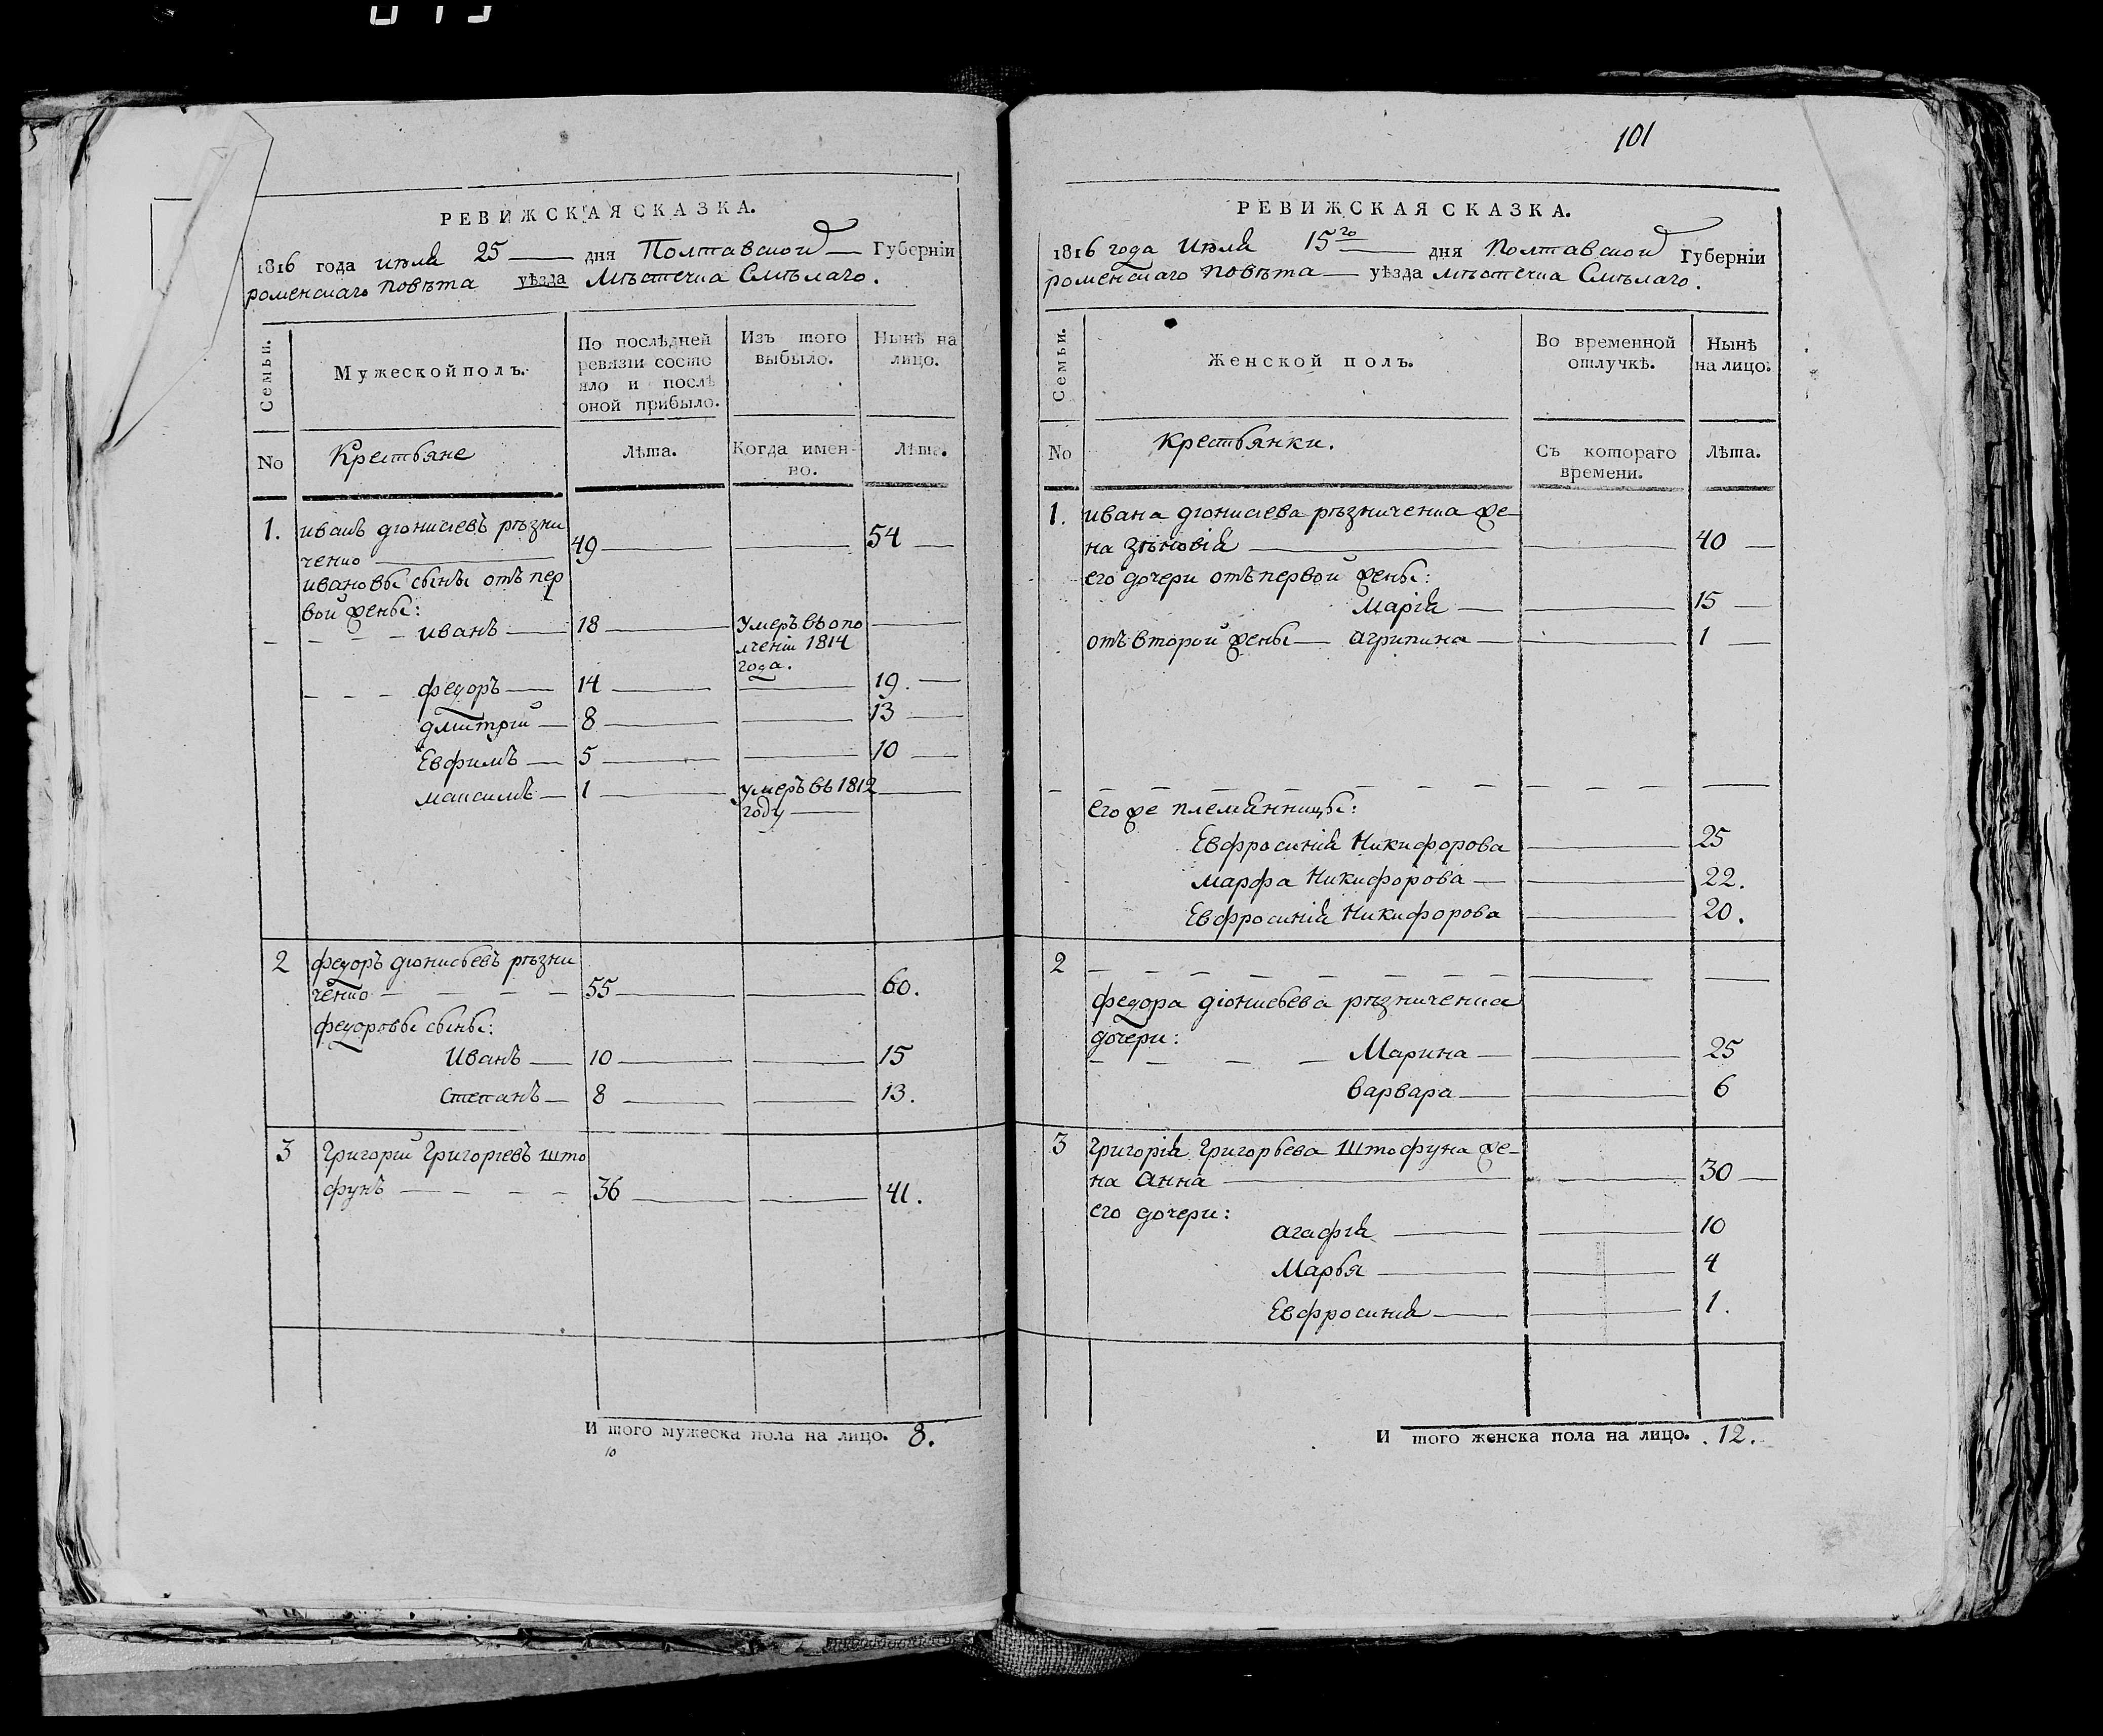 РЕВИЖСКАЯ СКАЗКА.
1816 года июля 25 дня Полтавской Губерніи
роменскаго повѣта уѣзда мѣстечка Смѣлаго.
Семьи.
Мужеской полъ.
По послѣдней ревизіи состояло и послѣ оной прибыло.
Изъ того выбыло.
Нынѣ на лицо.
No
Крестьяне
Лѣта.
Когда именно.
Лѣта.
1. иванъ діонисіевъ рѣзни
ченко 49 54
ивановы сыны отъ пер
вой жены:
иванъ 18 умеръ въ опо
лченіи 1814
года.
федоръ 14 19.
дмитрій 8 13
Евфимъ 5 10
максимъ 1 умеръ въ 1812
году
2 федоръ діонисьевъ рѣзни
ченко 55 60.
федоровы сыны:
Иванъ 10 15
степанъ 8 13.
3 Григорій Григоріевъ што
фунъ 36 41.
И того мужеска пола на лицо. 8.
10
101
РЕВИЖСКАЯ СКАЗКА.
1816 года июля 15го дня Полтавской Губерніи
роменскаго повѣта уѣзда мѣстечка Смѣлаго.
Семьи.
Женской полъ.
Во временной отлучкѣ.
Нынѣ на лицо.
No
Крестьянки.
Съ котораго времени.
Лѣта.
1. ивана діонисіева рѣзниченка же-
на зѣновія 40
его дочери отъ первой жены:
марія 15
отъ второй жены агрипина 1
его же племянницы:
Евфросинія Никифорова 25
марфа Никифорова 22.
Евфросинія Никифорова 20.
2
федора діонисьева рѣзниченка
дочери:
Марина 25
варвара 6
3 григорія григорьева штофуна же-
на анна 30
его дочери:
агафія 10
Марья 4
Евфросинія 1.
И того женска пола на лицо. 12.